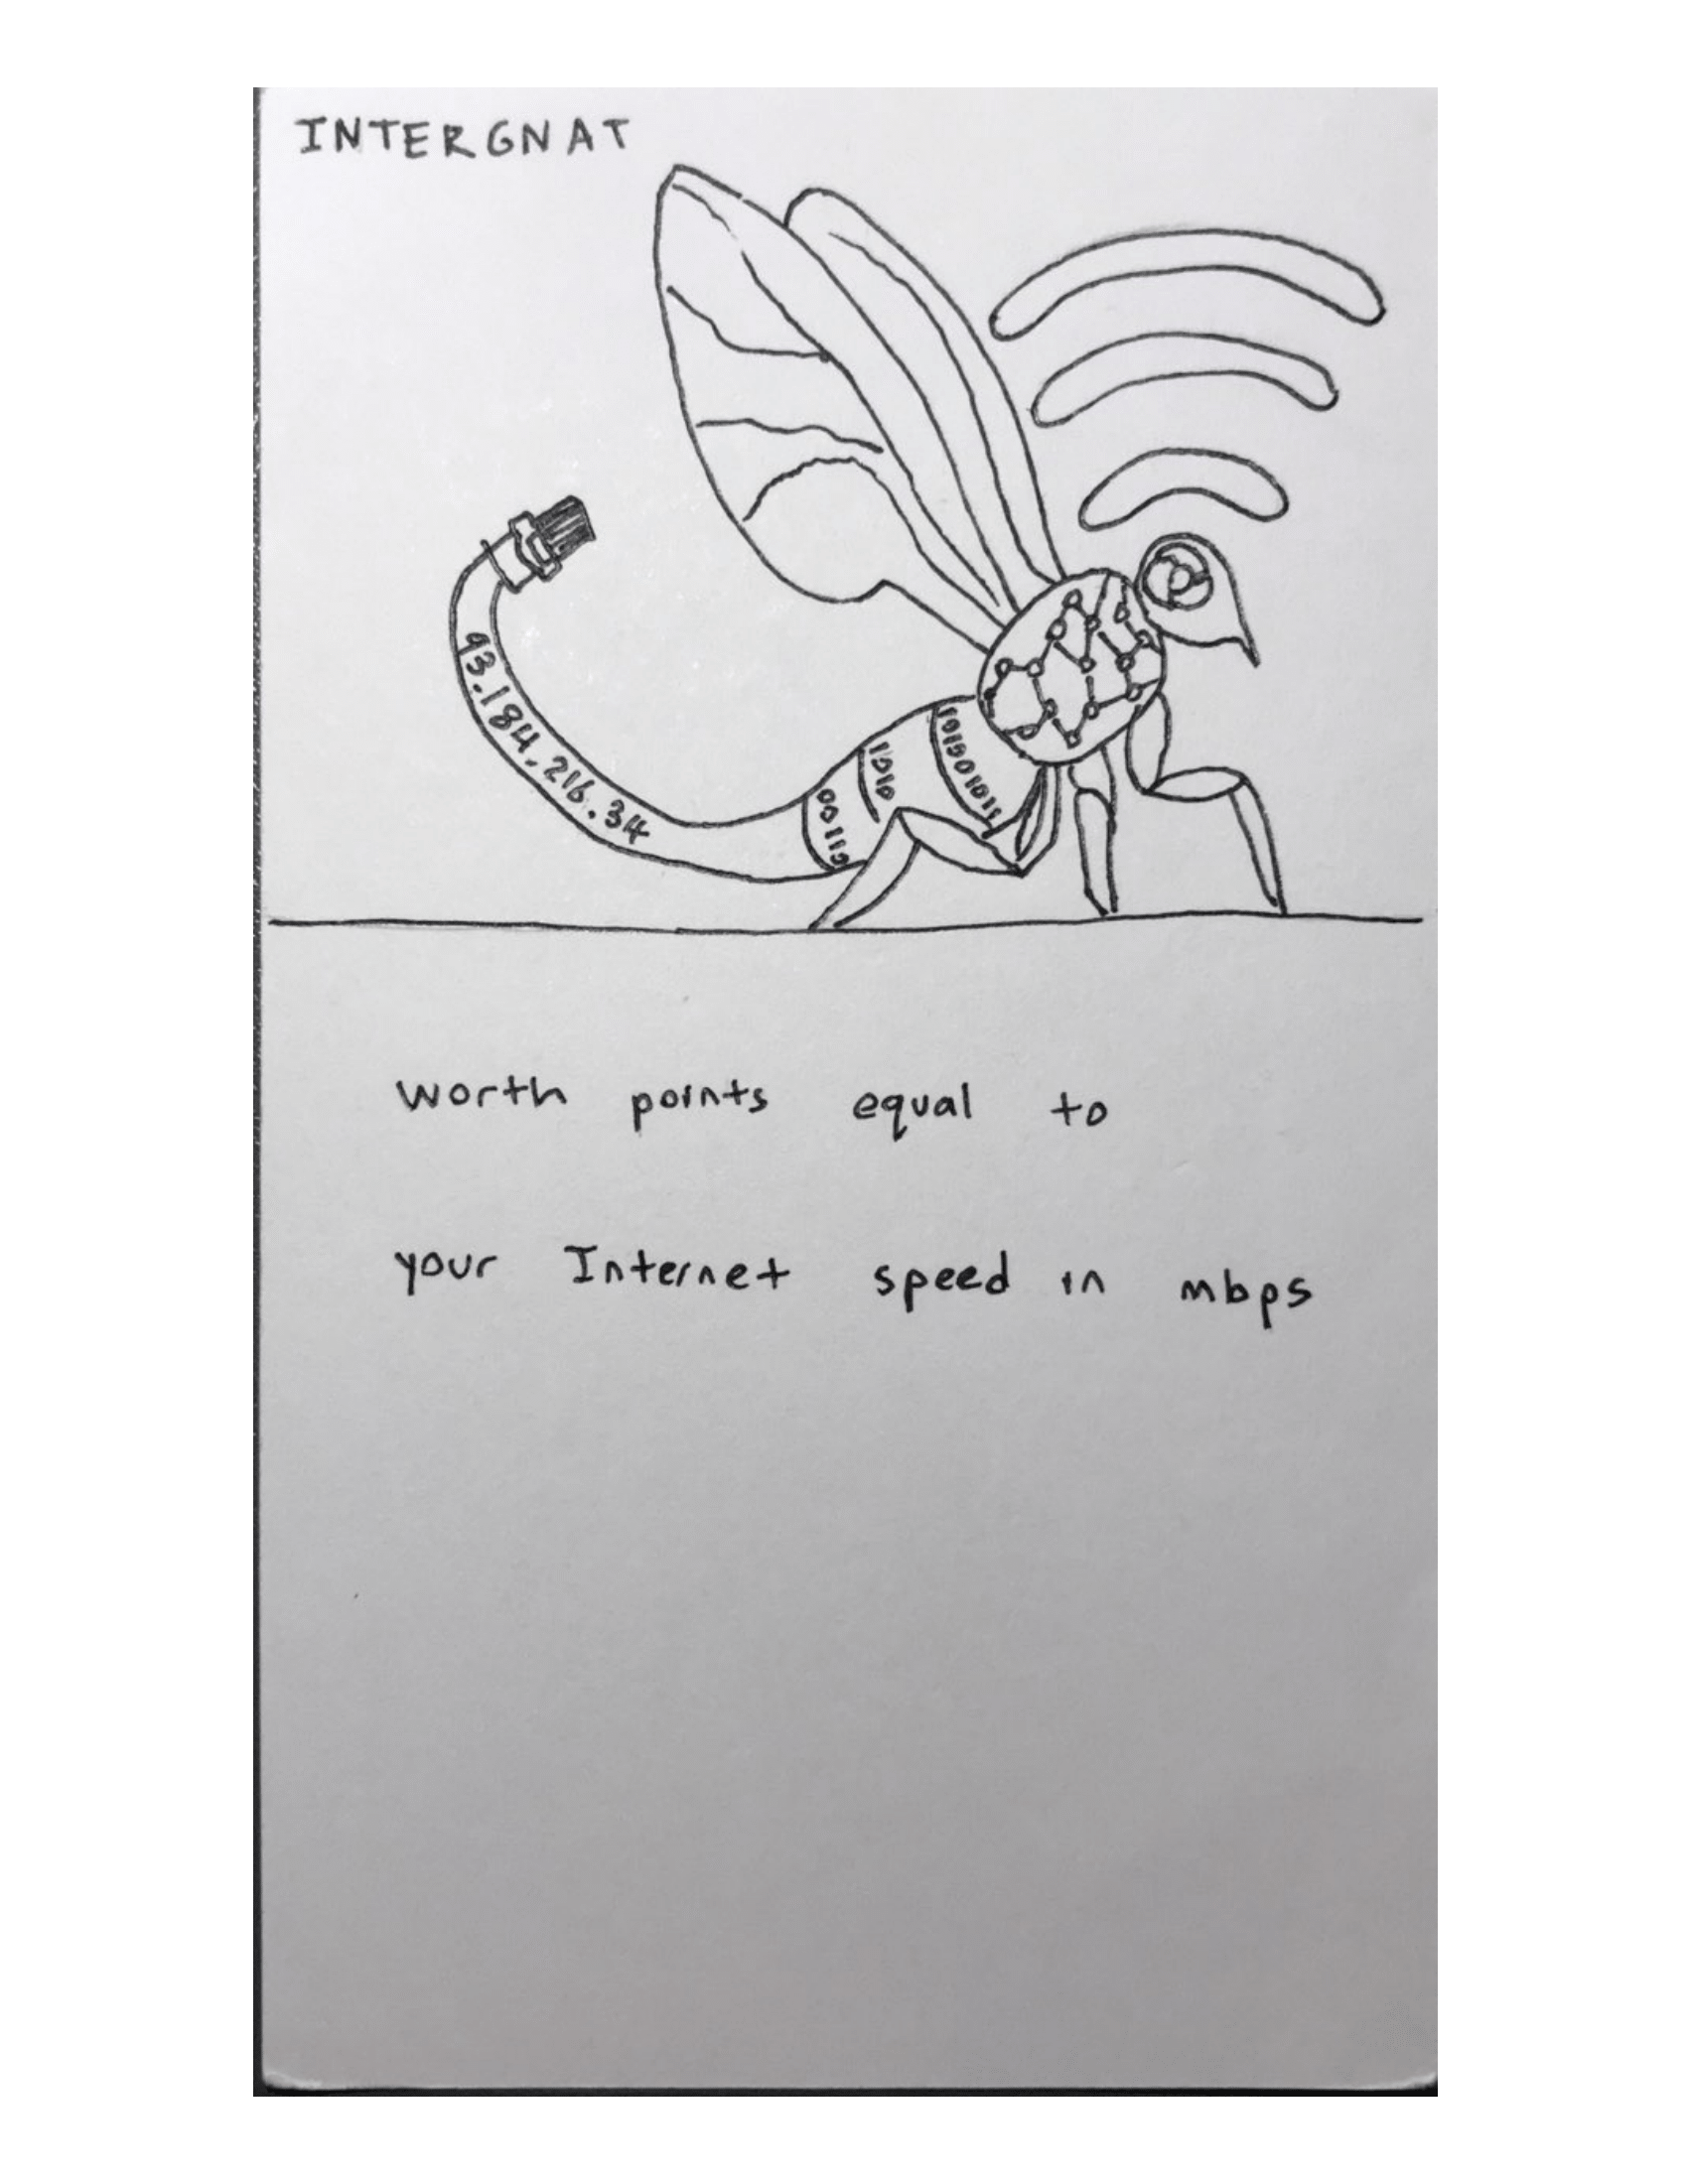 INTERGNAT
93.184.216.34
00110
1010
101001011
worth points equal to
your Internet speed in mbps